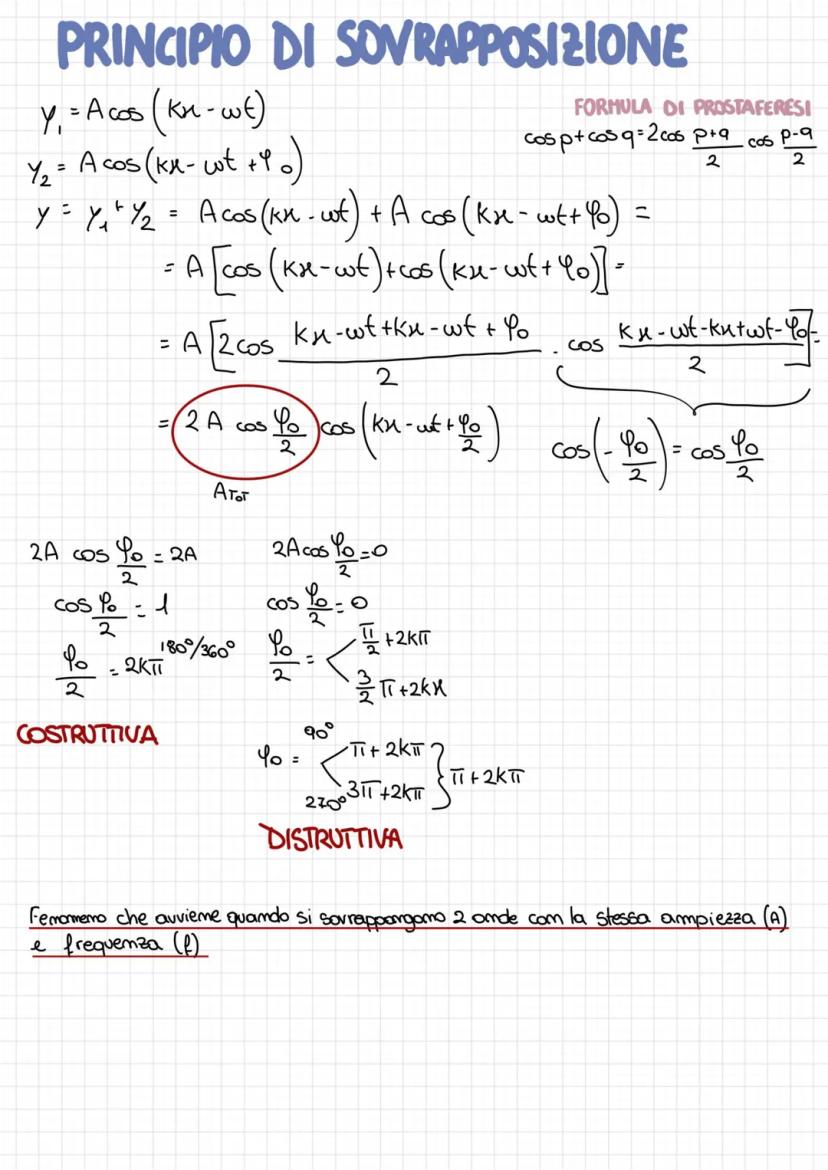 PRINCIPIO DI SOVRAPPOSIZIONE
y₁ = A cos (kx - ωt)
FORMULA DI PROSTAFERESI
cos p + cos q = 2 cos (p+q)/2 cos (p-q)/2
y₂ = A cos (kx - ωt + φ₀)
y = y₁ + y₂ = A cos (kx - ωt) + A cos (kx - ωt + φ₀) =
= A [cos (kx - ωt) + cos (kx - ωt + φ₀)] =
= A [2 cos (kx - ωt + kx - ωt + φ₀)/2 · cos (kx - ωt - kx + ωt - φ₀)/2] =
= 2 A cos φ₀/2 cos (kx - ωt + φ₀/2)
cos (- φ₀/2) = cos φ₀/2
A TOT
2A cos φ₀/2 = 2A
cos φ₀/2 = 1
φ₀/2 = 2kπ 180°/360°
COSTRUTTIVA
2A cos φ₀/2 = 0
cos φ₀/2 = 0
φ₀/2 = < π/2 + 2kπ
3/2 π + 2kx
φ₀ = < 90° π + 2kπ
270° 3π + 2kπ } π + 2kπ
DISTRUTTIVA
Fenomeno che avviene quando si sovrappongono 2 onde con la stessa ampiezza (A)
e frequenza (f)